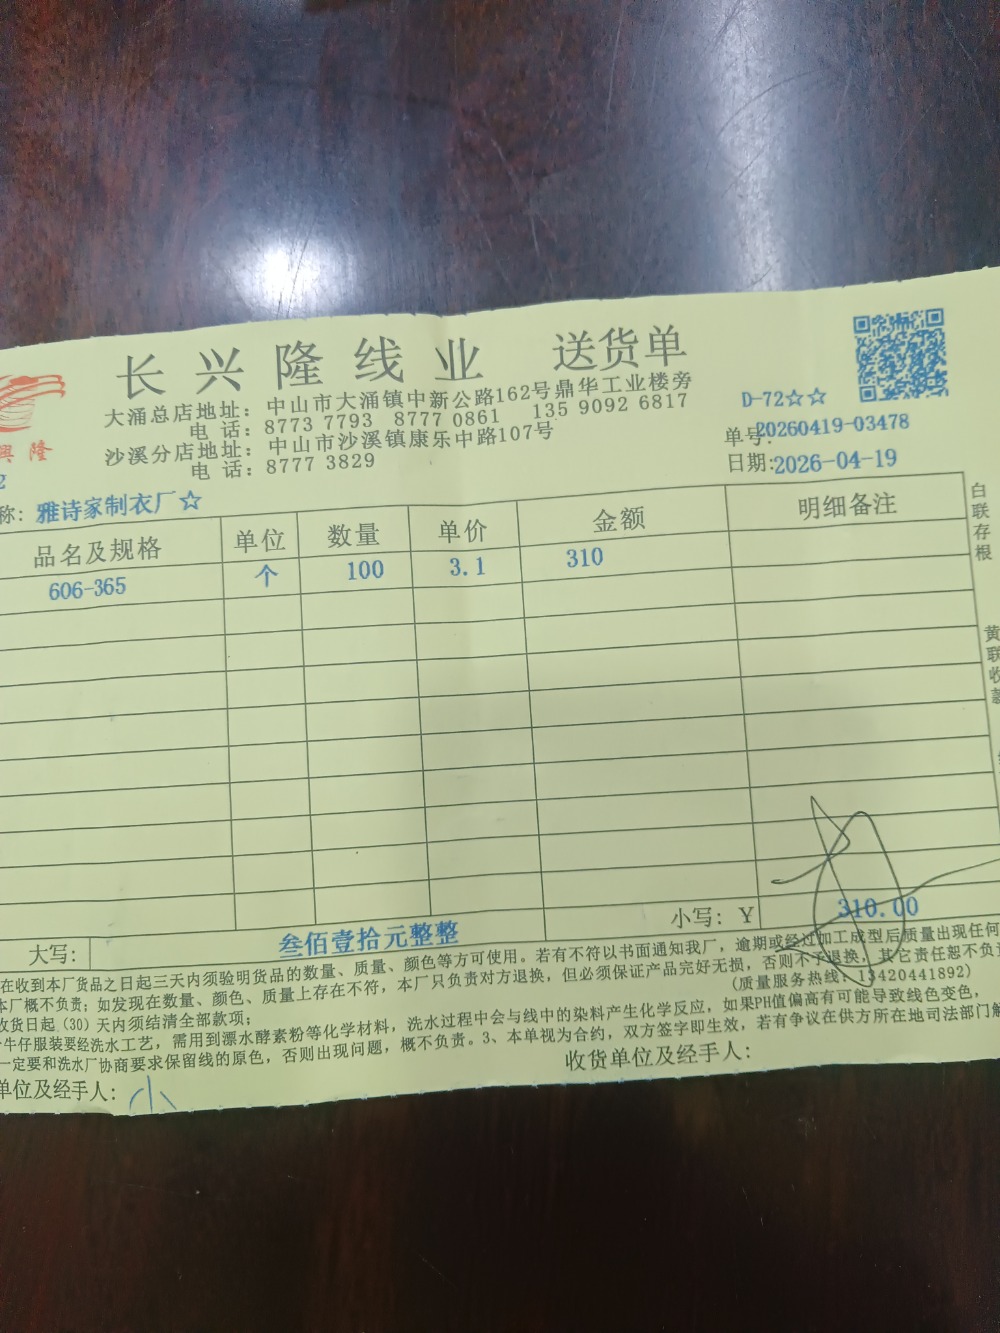 长兴隆线业 送货单
興隆
大涌总店地址：中山市大涌镇中新公路162号鼎华工业楼旁
电 话：8773 7793 8777 0861 135 9092 6817
沙溪分店地址：中山市沙溪镇康乐中路107号
电 话：8777 3829
D-72☆☆
单号:20260419-03478
日期:2026-04-19
2
称：雅诗家制衣厂☆
品名及规格 单位 数量 单价 金额 明细备注
606-365 个 100 3.1 310
白联存根
黄联收款
大写： 叁佰壹拾元整整 小写：Y 310.00
在收到本厂货品之日起三天内须验明货品的数量、质量、颜色等方可使用。若有不符以书面通知我厂，逾期或经过加工成型后质量出现任何
本厂概不负责；如发现在数量、颜色、质量上存在不符，本厂只负责对方退换，但必须保证产品完好无损，否则不予退换，其它责任恕不负
收货日起（30）天内须结清全部款项； (质量服务热线：13420441892)
牛仔服装要经洗水工艺，需用到漂水酵素粉等化学材料，洗水过程中会与线中的染料产生化学反应，如果PH值偏高有可能导致线色变色，
一定要和洗水厂协商要求保留线的原色，否则出现问题，概不负责。3、本单视为合约，双方签字即生效，若有争议在供方所在地司法部门解
单位及经手人： 小 收货单位及经手人：